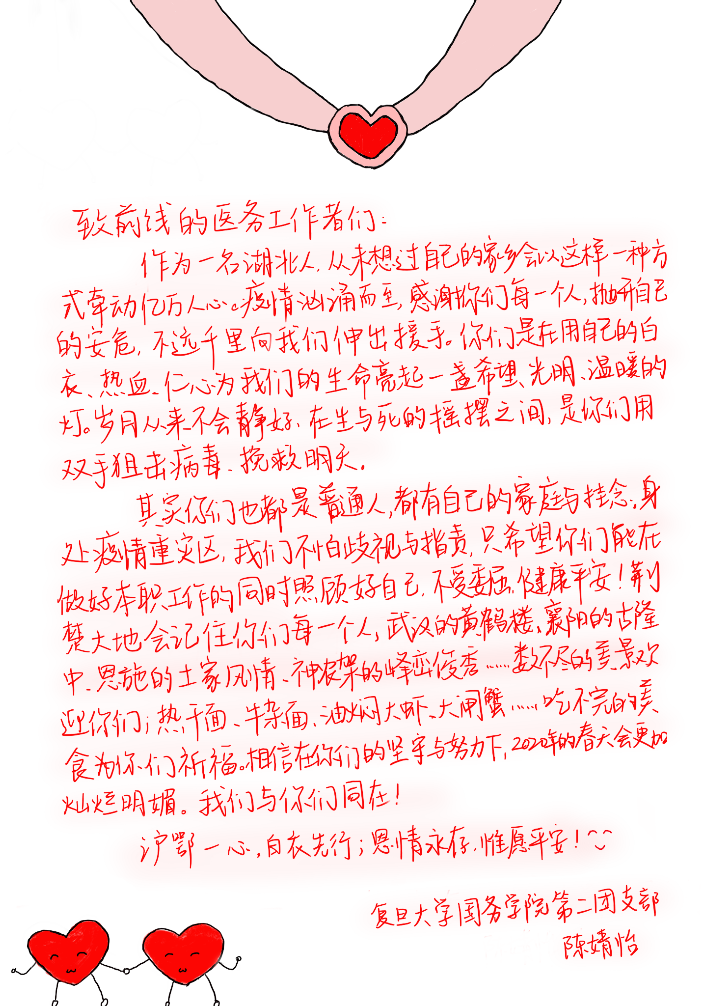 致前线的医务工作者们:
作为一名湖北人,从未想过自己的家乡会以这样一种方
式牵动亿万人心。疫情汹涌而至,感谢你们每一个人,抛开自己
的安危,不远千里向我们伸出援手。你们是在用自己的白
衣、热血、仁心为我们的生命亮起一盏希望、光明、温暖的
灯。岁月从来不会静好,在生与死的摇摆之间,是你们用
双手狙击病毒、挽救明天。
其实你们也都是普通人,都有自己的家庭与挂念,身
处疫情重灾区,我们不怕歧视与指责,只希望你们能在
做好本职工作的同时照顾好自己,不受委屈,健康平安!荆
楚大地会记住你们每一个人,武汉的黄鹤楼、襄阳的古隆
中、恩施的土家风情、神农架的峰峦俊秀……数不尽的美景欢
迎你们;热干面、牛杂面、油焖大虾、大闸蟹……吃不完的美
食为你们祈福。相信在你们的坚守与努力下,2020年的春天会更加
灿烂明媚。我们与你们同在!
沪鄂一心,白衣先行;恩情永存,惟愿平安!
复旦大学国务学院第二团支部
陈婧怡